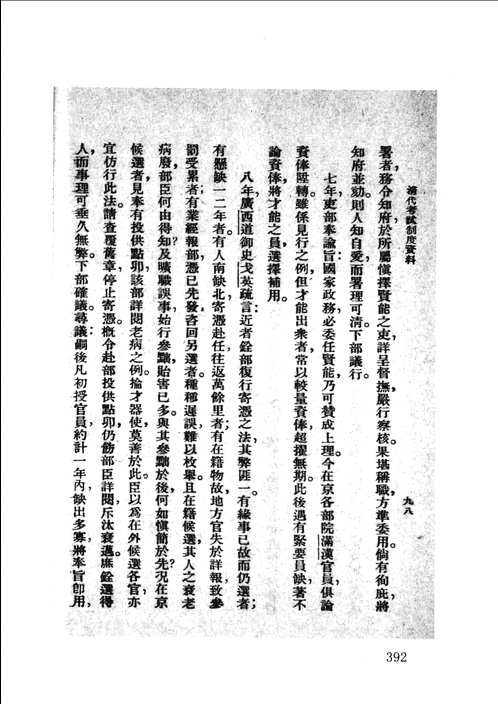 清代考試制度資料
九八
署者，務令知府於所屬愼擇賢能之吏，詳呈督撫，嚴行察核。果堪稱職，方準委用。倘有徇庇，將
知府並劾，則人知自愛，而署理可清。下部議行。
七年，吏部奉諭旨：國家政務，必委任賢能，乃可贊成上理。今在京各部院滿漢官員，俱論
資俸陞轉。雖係見行之例，但才能出衆者，常以較量資俸，超擢無期。此後遇有緊要員缺，著不
論資俸，將才能之員，選擇補用。
八年，廣西道御史戈英疏言：近者銓部復行寄憑之法，其弊匪一。有緣事已故而仍選者；
有懸缺一二年者；有人南缺北，寄憑赴任，往返萬餘里者；有在籍物故，地方官失於詳報，致參
罰受累者；有業經報部，憑已先發，咨回另選者。種種遲誤，難以枚舉。且在籍候選，其人之衰老
病廢，部臣何由得知？及曠職誤事，始行參黜，貽害已多。與其參黜於後，何如愼簡於先？況在京
候選者，見奉有投供點卯，該部詳閱老病之例。掄才器使，莫善於此。臣以爲在外候選各官，亦
宜仿行此法。請查覆舊章，停止寄憑。概令赴部投供點卯，仍飭部臣詳閱，斥汰衰邁。庶銓選得
人，而事理可垂久無弊。下部確議。尋議：嗣後凡初授官員，約計一年內，缺出多寡，將奉旨即用，
392